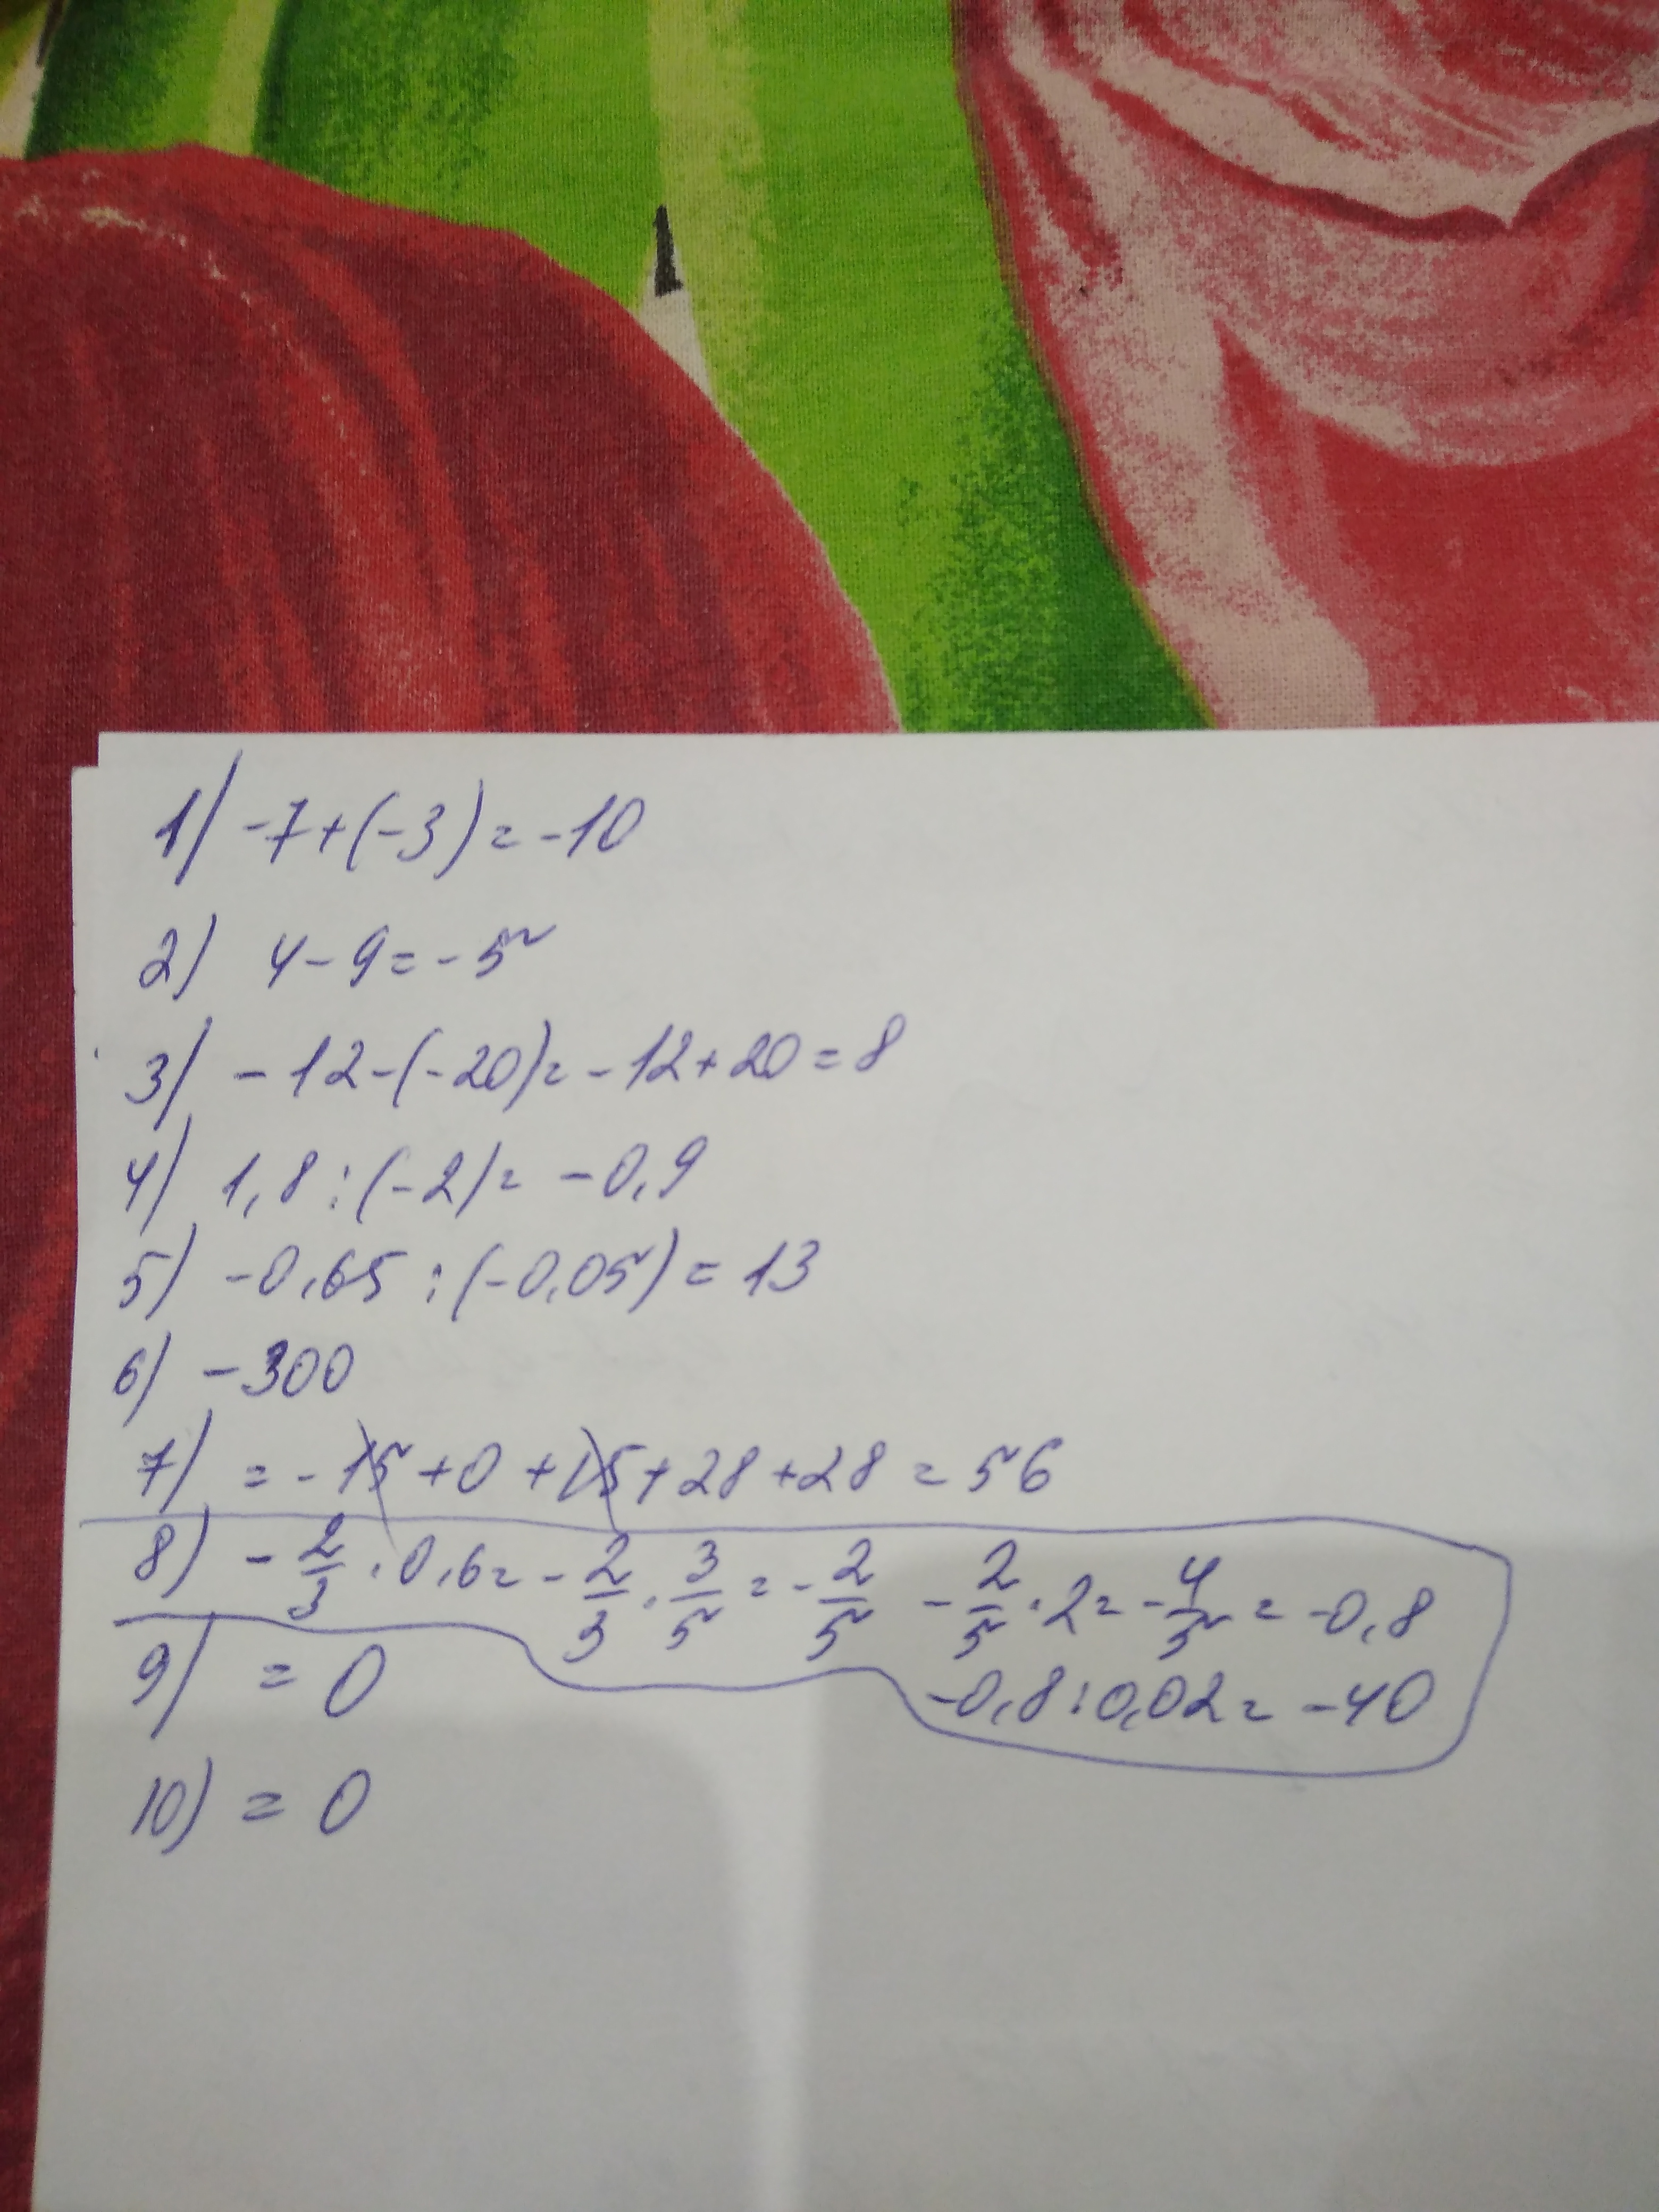 1) -7+(-3)=-10
2) 4-9=-5
3) -12-(-20)=-12+20=8
4) 1,8:(-2)= -0,9
5) -0,65:(-0,05)=13
6) -300
7) =-15+0+15+28+28=56
8) -2/3·0,6=-2/3·3/5=-2/5 -2/5·2=-4/5=-0,8
-0,8:0,02=-40
9) =0
10) =0